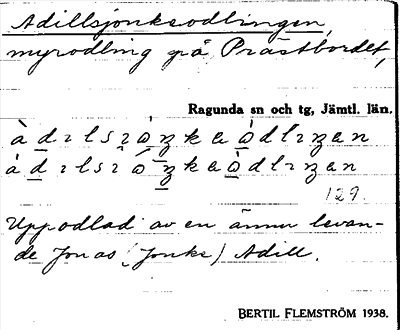 Adillsjonksodlingen,
myrodling på Prästbordet,
Ragunda sn och tg, Jämtl. län.
129.
Uppodlad av en ännu levan-
de Jonas (Jonke) Adill.
BERTIL FLEMSTRÖM 1938.